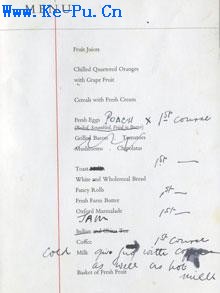 www.Ke-Pu.Cn
MENU
Fruit Juices
Chilled Quartered Oranges
with Grape Fruit
Cereals with Fresh Cream
Fresh Eggs POACH x 1st Course
(Boiled, Scrambled, Fried in Butter)
Grilled Bacon Tomatoes
Mushrooms Chipolatas
Toast 1st —
White and Wholemeal Bread
Fancy Rolls 1st —
Fresh Farm Butter
Oxford Marmalade 1st —
JAM
Indian and China Tea
Coffee 1st Course
Cold Milk with
as well as hot milk
Basket of Fresh Fruit